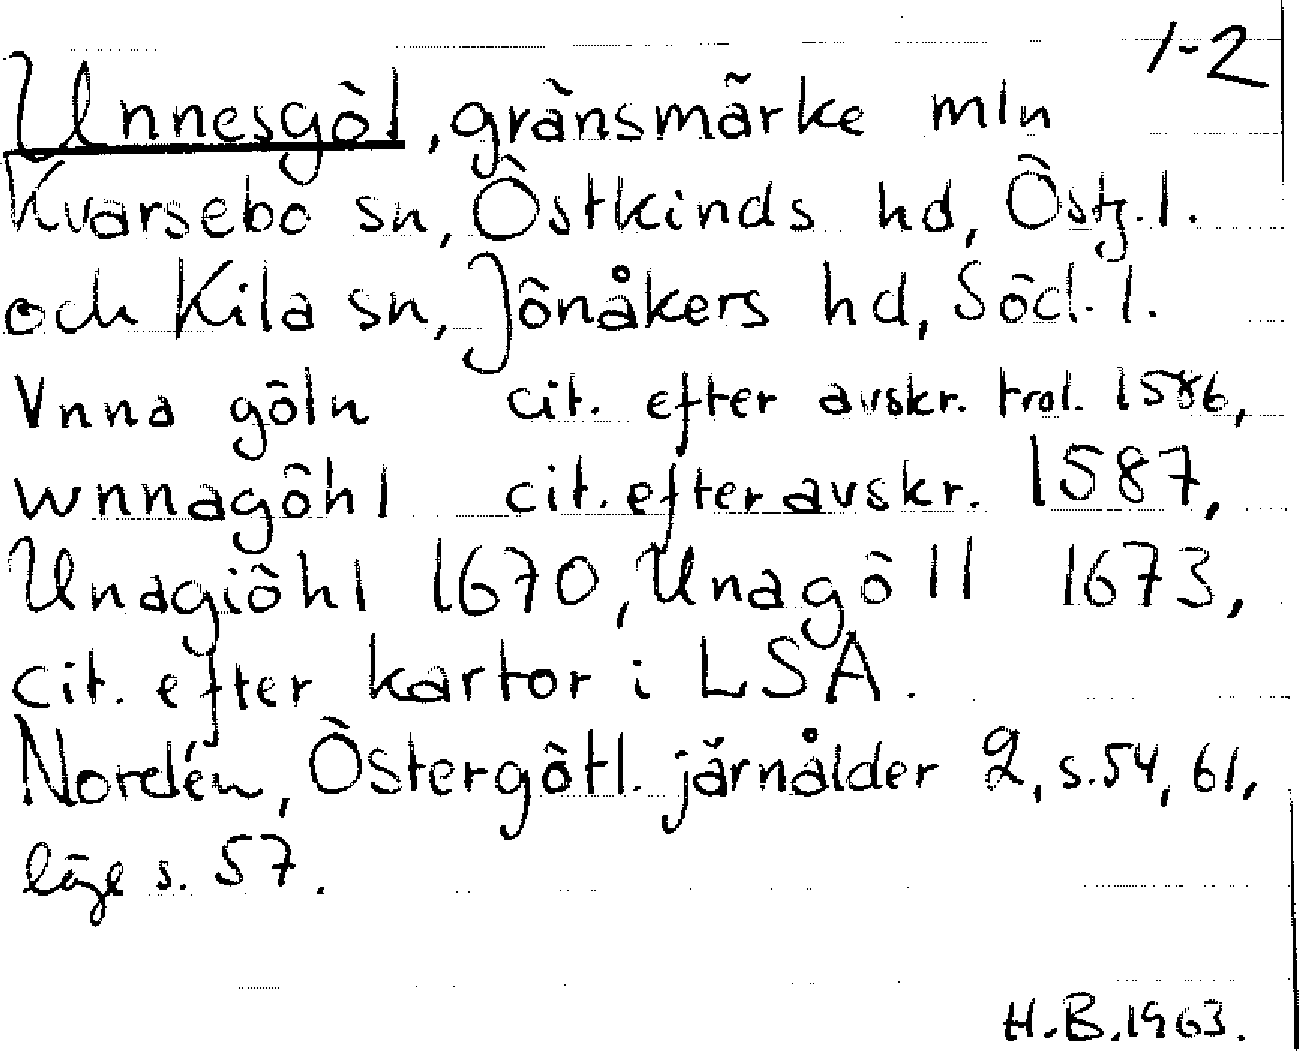 1-2
Unnesgöl, gränsmärke mln
Kvarsebo sn, Östkinds hd, Östg.l.
och Kila sn, Jönåkers hd, Söd.l.
Vnna göln cit. efter avskr. trol. 1586,
wnnagöhl cit. efter avskr. 1587,
Unagiöhl 1670, Unagöll 1673,
cit. efter kartor i LSA.
Nordén, Östergötl. järnålder 2, s. 54, 61,
läge s. 57.
H.B. 1963.